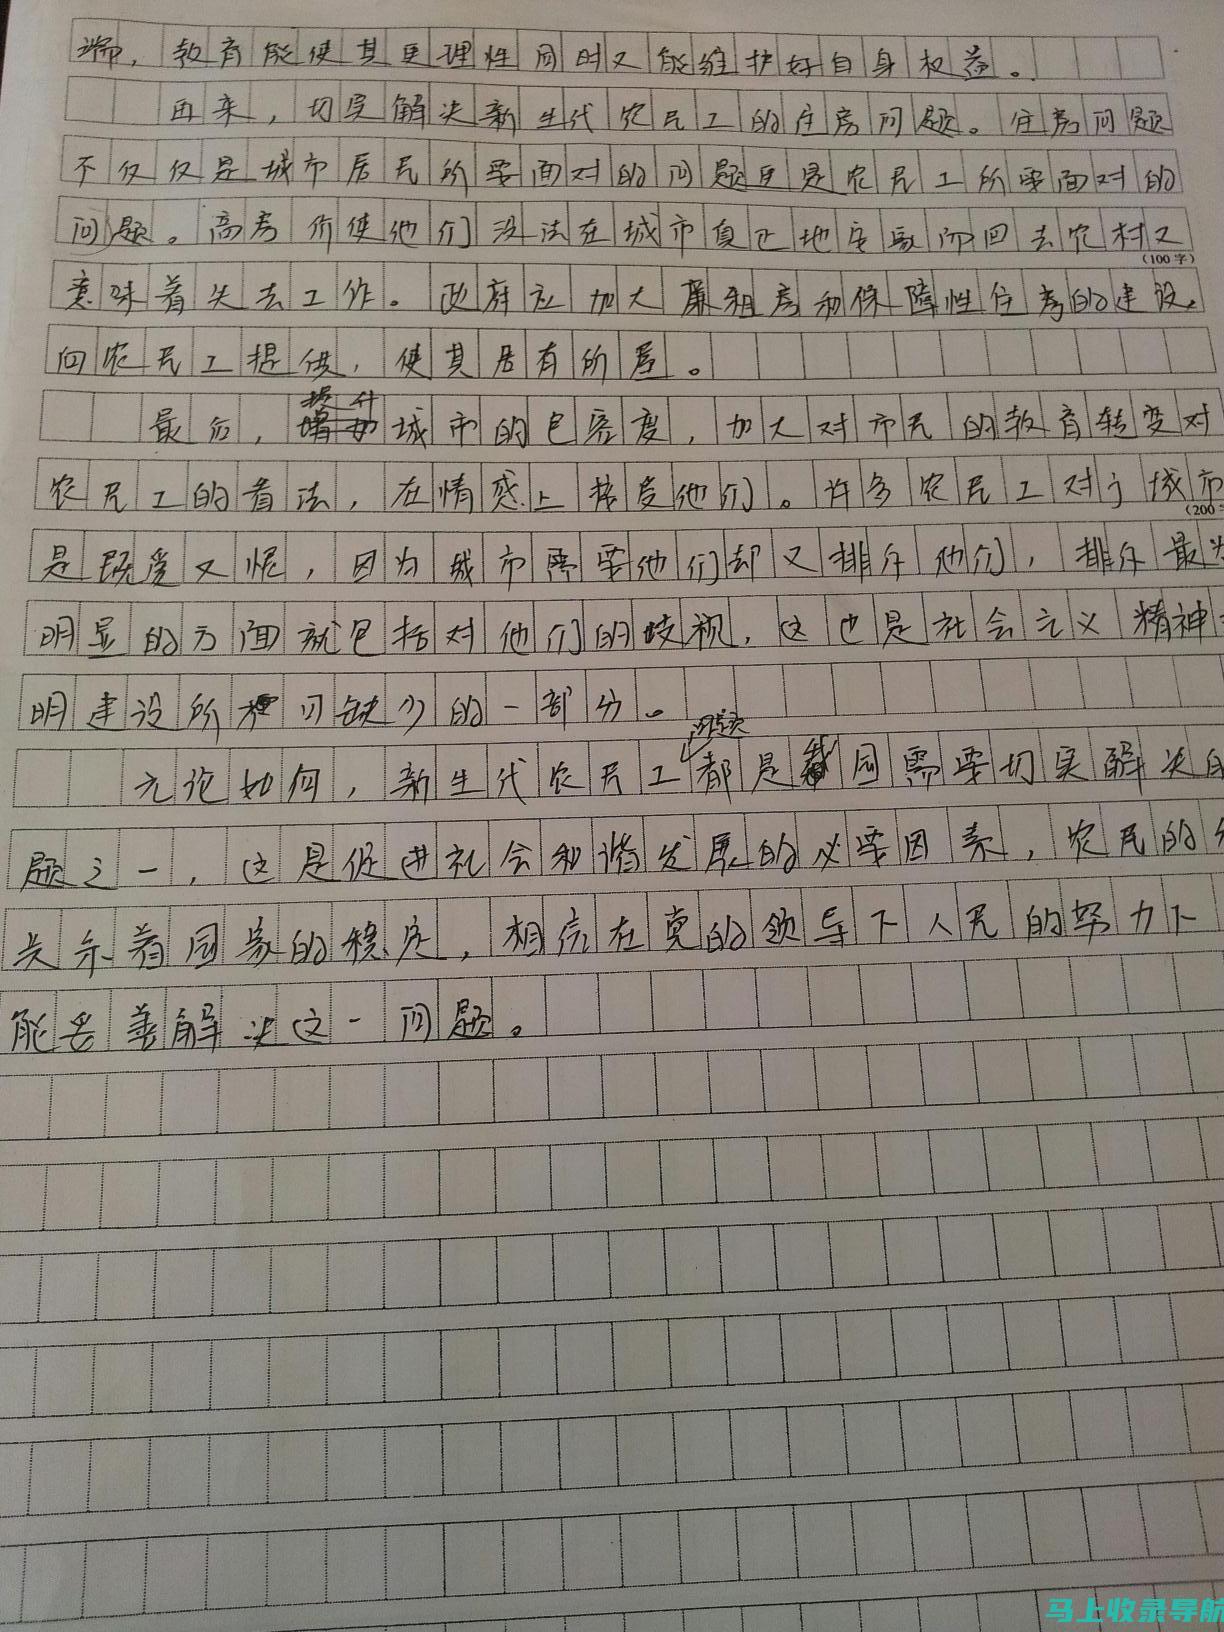 端，教育能使其更理性同时又能维护好自身权益。
再来，切实解决新生代农民工的住房问题。住房问题
不仅仅是城市居民所要面对的问题更是农民工所要面对的
问题。高房价使他们没法在城市真正地安家而回去农村又
(100字)
意味着失去工作。政府应加大廉租房和保障性住房的建设。
向农民工提供，使其居有所居。
提升
最后，城市的包容度，加大对市民的教育转变对
农民工的看法，在情感上接受他们。许多农民工对于城市
(200
是既爱又恨，因为城市需要他们却又排斥他们，排斥最为
明显的方面就包括对他们的歧视，这也是社会主义精神
明建设所不可缺少的一部分。
问题
无论如何，新生代农民工都是我国需要切实解决的
题之一，这是促进社会和谐发展的必要因素，农民的
关乎着国家的稳定，相信在党的领导下人民的努力下
能妥善解决这一问题。
马上收录导航